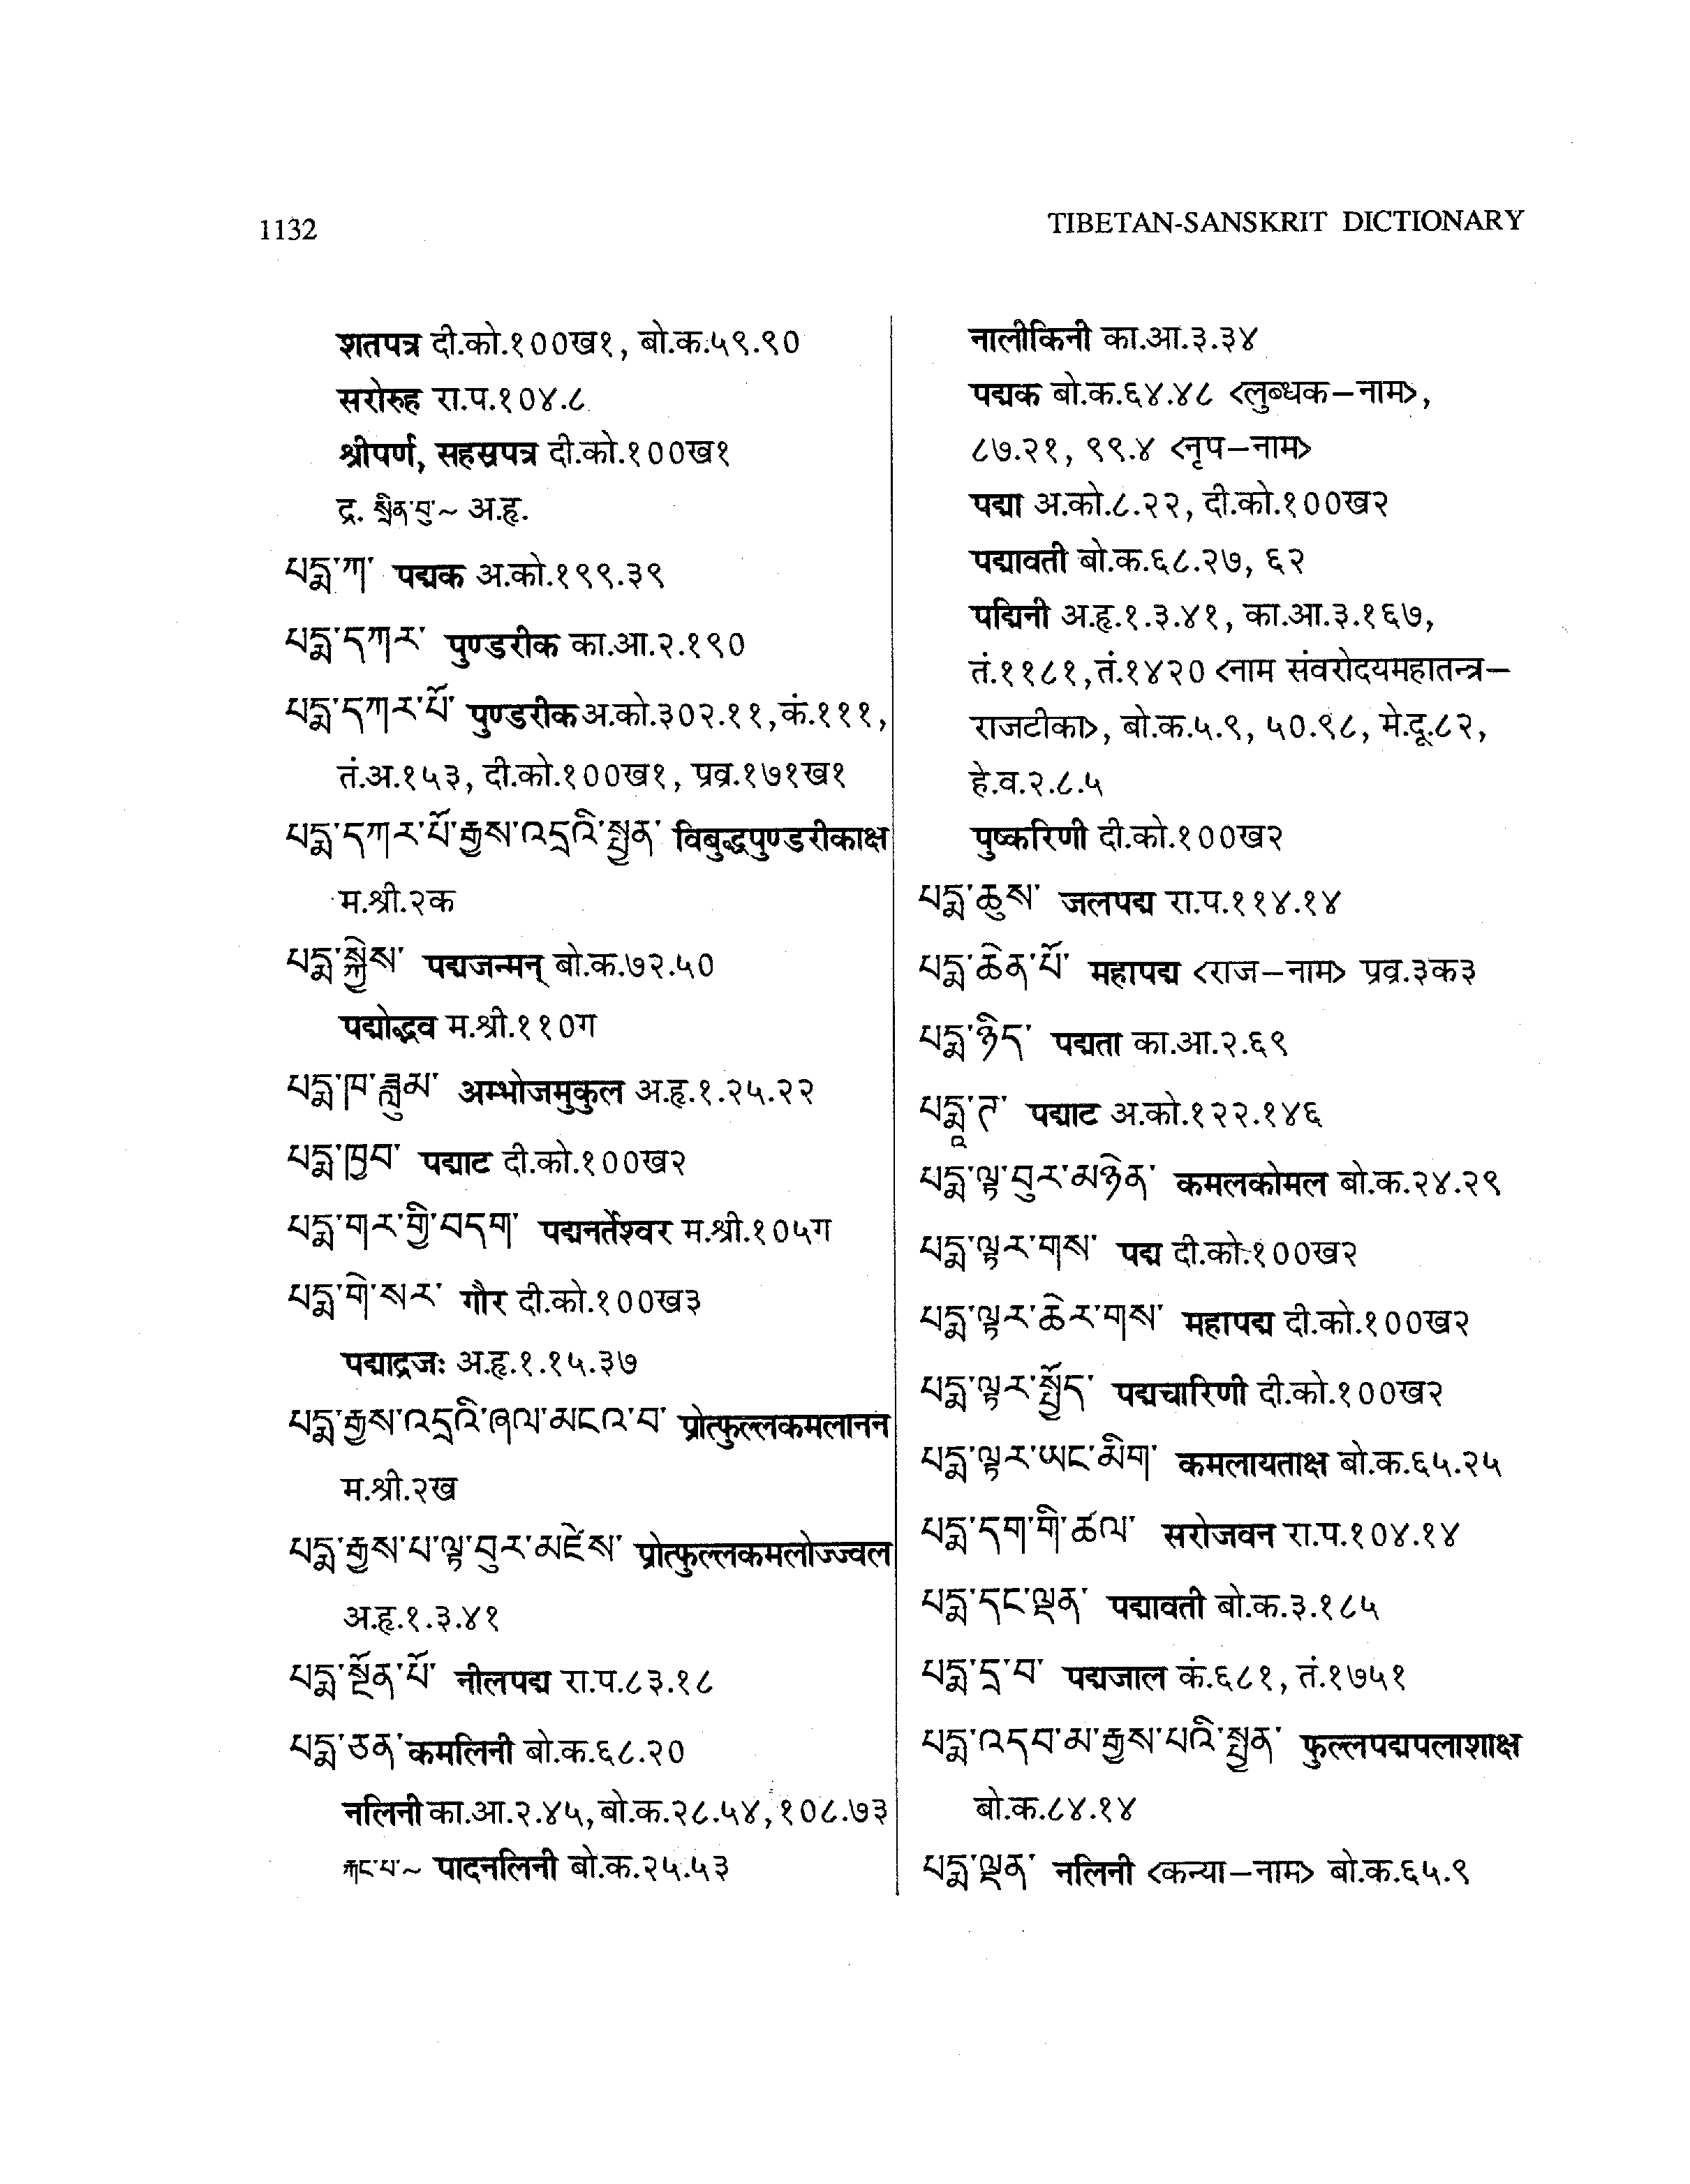 1132
TIBETAN-SANSKRIT DICTIONARY
शतपत्र दी.को.१००ख१, बो.क.५९.९०
सरोरुह रा.प.१०४.८
श्रीपर्ण, सहस्रपत्र दी.को.१००ख१
द्र. སྲིན་བུ་~ अ.हृ.
པདྨ་ཀ་ पद्मक अ.को.१९९.३९
པདྨ་དཀར་ पुण्डरीक का.आ.२.१९०
པདྨ་དཀར་པོ་ पुण्डरीक अ.को.३०२.११, कं.१११,
तं.अ.१५३, दी.को.१००ख१, प्रव्र.१७१ख१
པདྨ་དཀར་པོ་རྒྱས་འདྲའི་སྤྱན་ विबुद्धपुण्डरीकाक्ष
म.श्री.२क
པདྨ་སྐྱེས་ पद्मजन्मन् बो.क.७२.५०
पद्मोद्भव म.श्री.११०ग
པདྨ་ཁ་ཟླུམ་ अम्भोजमुकुल अ.हृ.१.२५.२२
པདྨ་ཁྱབ་ पद्माट दी.को.१००ख२
པདྨ་གར་གྱི་བདག་ पद्मनर्तेश्वर म.श्री.१०५ग
པདྨ་གེ་སར་ गौर दी.को.१००ख३
पद्माद्रजः अ.हृ.१.१५.३७
པདྨ་རྒྱས་འདྲའི་ཞལ་མངའ་བ་ प्रोत्फुल्लकमलानन
म.श्री.२ख
པདྨ་རྒྱས་པ་ལྟ་བུར་མཛེས་ प्रोत्फुल्लकमलोज्ज्वल
अ.हृ.१.३.४१
པདྨ་སྔོན་པོ་ नीलपद्म रा.प.८३.१८
པདྨ་ཅན་ कमलिनी बो.क.६८.२०
नलिनी का.आ.२.४५, बो.क.२८.५४, १०८.७३
རྐང་པ་~ पादनलिनी बो.क.२५.५३
नालीकिनी का.आ.३.३४
पद्मक बो.क.६४.४८ <लुब्धक-नाम>,
८७.२१, ९९.४ <नृप-नाम>
पद्मा अ.को.८.२२, दी.को.१००ख२
पद्मावती बो.क.६८.२७, ६२
पद्मिनी अ.हृ.१.३.४१, का.आ.३.१६७,
तं.११८१, तं.१४२० <नाम संवरोदयमहातन्त्र-
राजटीका>, बो.क.५.९, ५०.९८, मे.दू.८२,
हे.व.२.८.५
पुष्करिणी दी.को.१००ख२
པདྨ་ཆུས་ जलपद्म रा.प.११४.१४
པདྨ་ཆེན་པོ་ महापद्म <राज-नाम> प्रव्र.३क३
པདྨ་ཉིད་ पद्मता का.आ.२.६९
པདྨཱ་ཊ་ पद्माट अ.को.१२२.१४६
པདྨ་ལྟ་བུར་མཉེན་ कमलकोमल बो.क.२४.२९
པདྨ་ལྟར་གས་ पद्म दी.को.१००ख२
པདྨ་ལྟར་ཆེར་གས་ महापद्म दी.को.१००ख२
པདྨ་ལྟར་སྤྱོད་ पद्मचारिणी दी.को.१००ख२
པདྨ་ལྟར་ཡང་མིག་ कमलायताक्ष बो.क.६५.२५
པདྨ་དག་གི་ཚལ་ सरोजवन रा.प.१०४.१४
པདྨ་དང་ལྡན་ पद्मावती बो.क.३.१८५
པདྨ་དྲ་བ་ पद्मजाल कं.६८१, तं.१७५१
པདྨ་འདབ་མ་རྒྱས་པའི་སྤྱན་ फुल्लपद्मपलाशाक्ष
बो.क.८४.१४
པདྨ་ལྡན་ नलिनी <कन्या-नाम> बो.क.६५.९